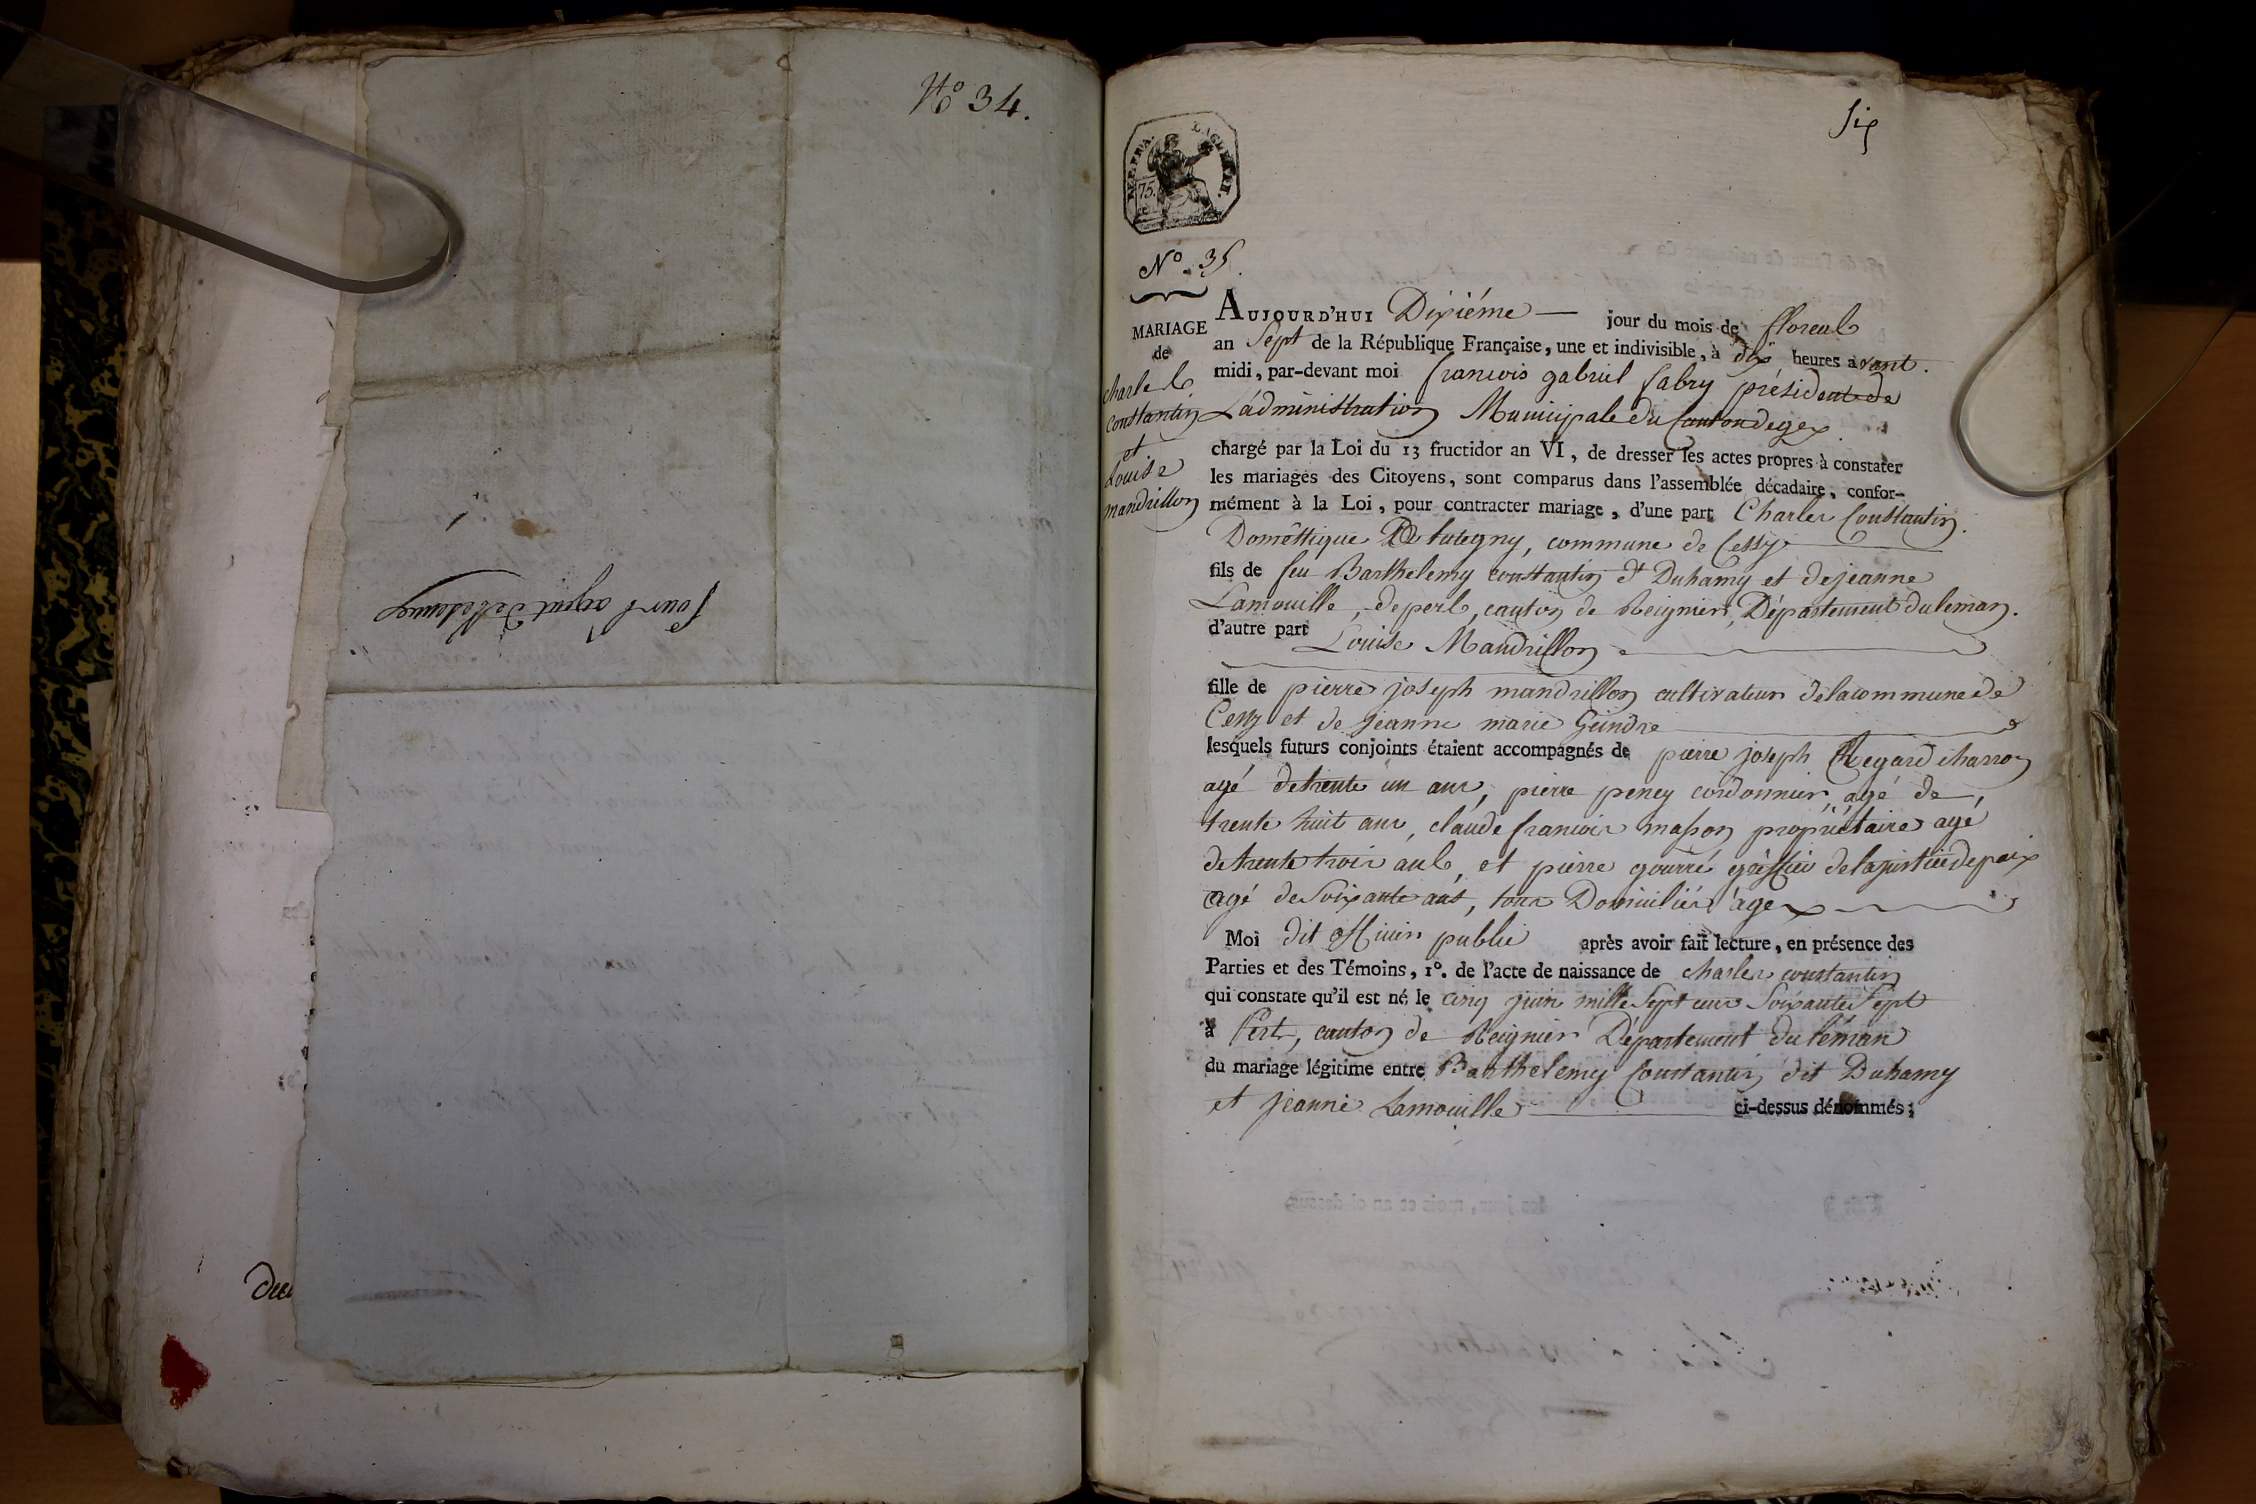 N.º 34.
Pour l'agent de
six
REP. FRA.
75.
Nº. 35.
MARIAGE
de
charles
constantin
et
Louise
mandrillon
AUJOURD'HUI Dixiéme — jour du mois de floreal
an Sept de la République Française, une et indivisible, à dix heures avant.
midi, par-devant moi francois gabriel fabry président de
L'administration Municipale du Canton de gex
chargé par la Loi du 13 fructidor an VI, de dresser les actes propres à constater
les mariages des Citoyens, sont comparus dans l'assemblée décadaire, confor-
mément à la Loi, pour contracter mariage, d'une part Charles Constantin.
Domêstique à tutegny, commune de Cessy
fils de feu Barthelemy constantin dt Duhamy et de jeanne
Lamouille, de pers, canton de Reignier, Département du leman.
d'autre part Louise Mandrillon
fille de pierre joseph mandrillon cultivateur de la commune de
Cessy et de jeanne marie Geindre
lesquels futurs conjoints étaient accompagnés de pierre joseph Regard charron
agé de trente un ans, pierre peney cordonnier, agé de,
trente huit ans, claude francois masson propriétaire agé
de trente trois ans, et pierre gourré gréffier de la justice de paix
agé de Soixante ans, tous Domiciliés à gex
Moi dit officier public après avoir fait lecture, en présence des
Parties et des Témoins, 1º. de l'acte de naissance de charles constantin
qui constate qu'il est né le cinq juin mille Sept cens Soixante Sept
à Pers, canton de Reignier Département du léman
du mariage légitime entre Barthelemy Constantin dit Duhamy
et jeanne Lamouille ci-dessus dénommés;